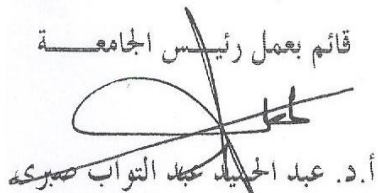 قائم بعمل رئيس الجامعة
أ.د. عبد الحميد عبد التواب صبرى